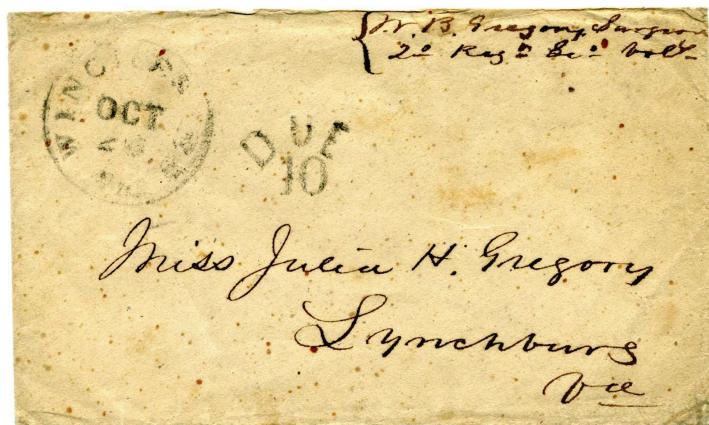 W. B. Gregory, Surgeon
2d Regt Vols
WINCHES
OCT
DUE
10
Miss Julia H. Gregory
Lynchburg
Va